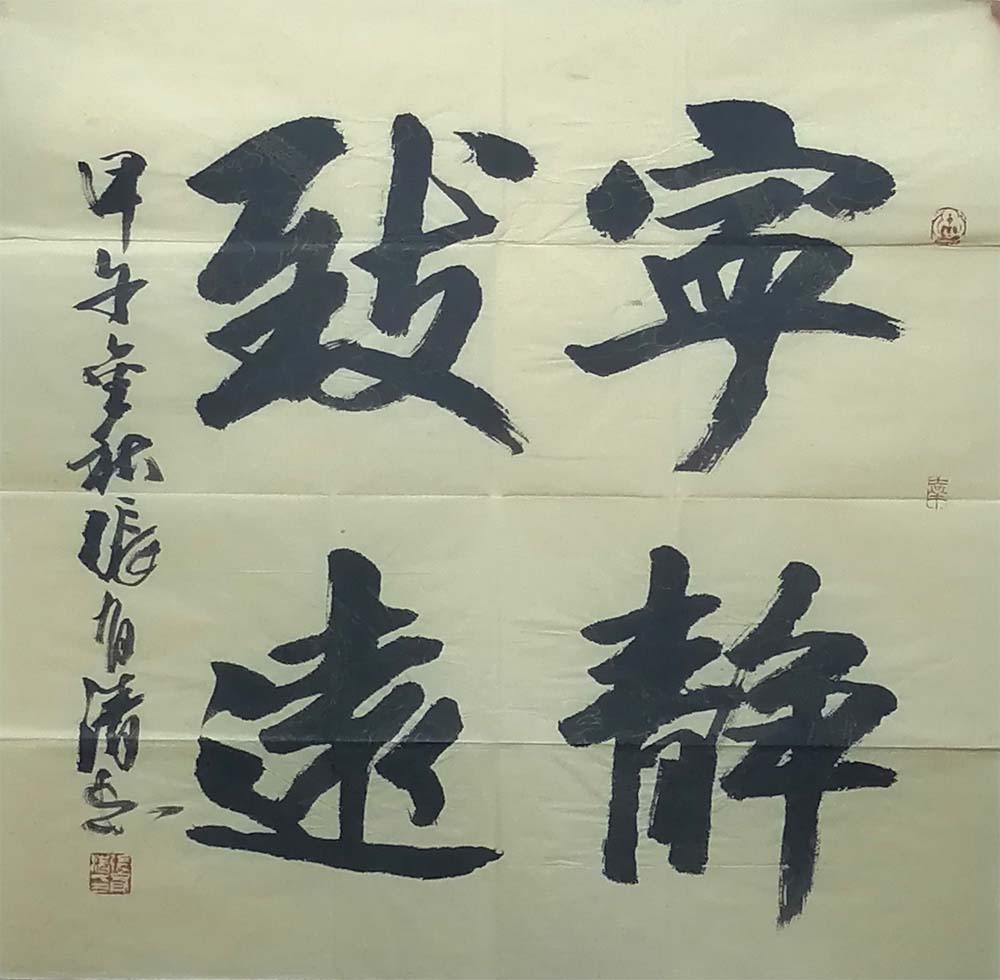 寧靜
致遠
甲午金秋張有清書